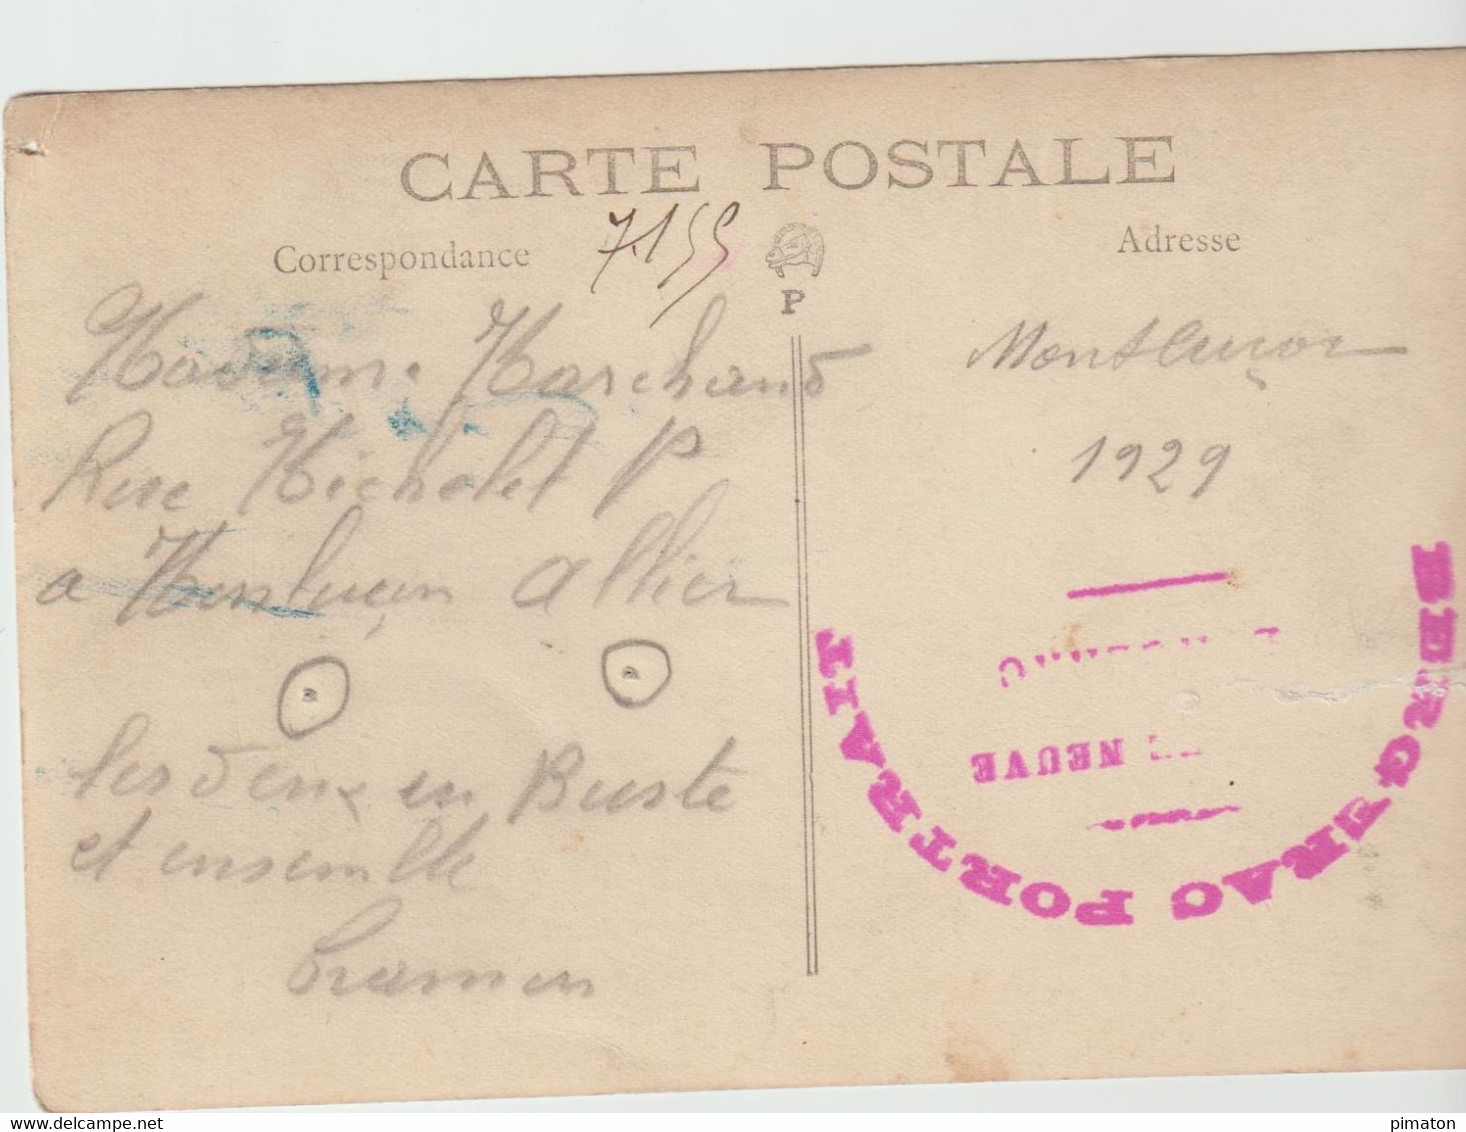 CARTE POSTALE
Correspondance
7.155
Adresse
P
Madame Marchand
Rue Michelet P
a Monluçon Allier
les deux en Buste
et ensemble
Montluçon
1929
BERGERAC PORTRAIT
NEUVE
delcampe.net
pimaton